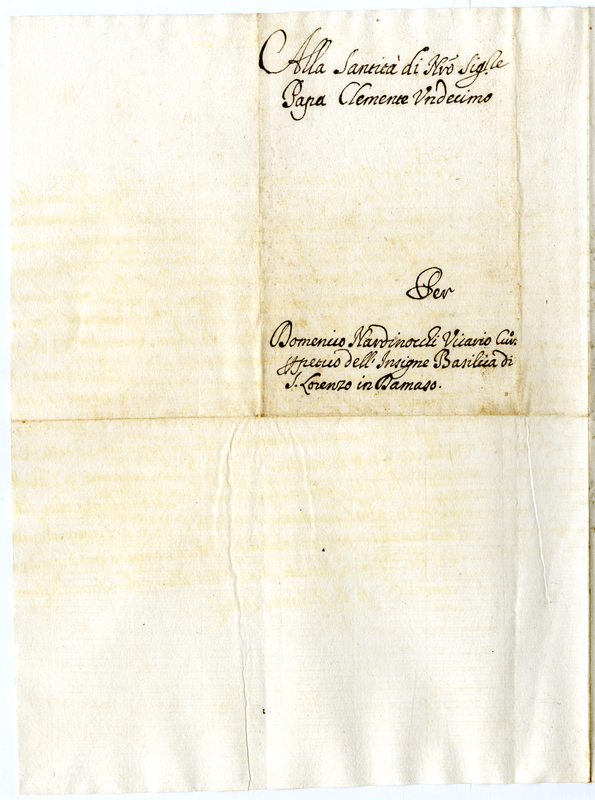 Alla Santità di Nrõ Sigre
Papa Clemente Undecimo
Per
Domenico Nardinocchi Vicario
ppetuo dell' Insigne Basilica di
S. Lorenzo in Damaso.